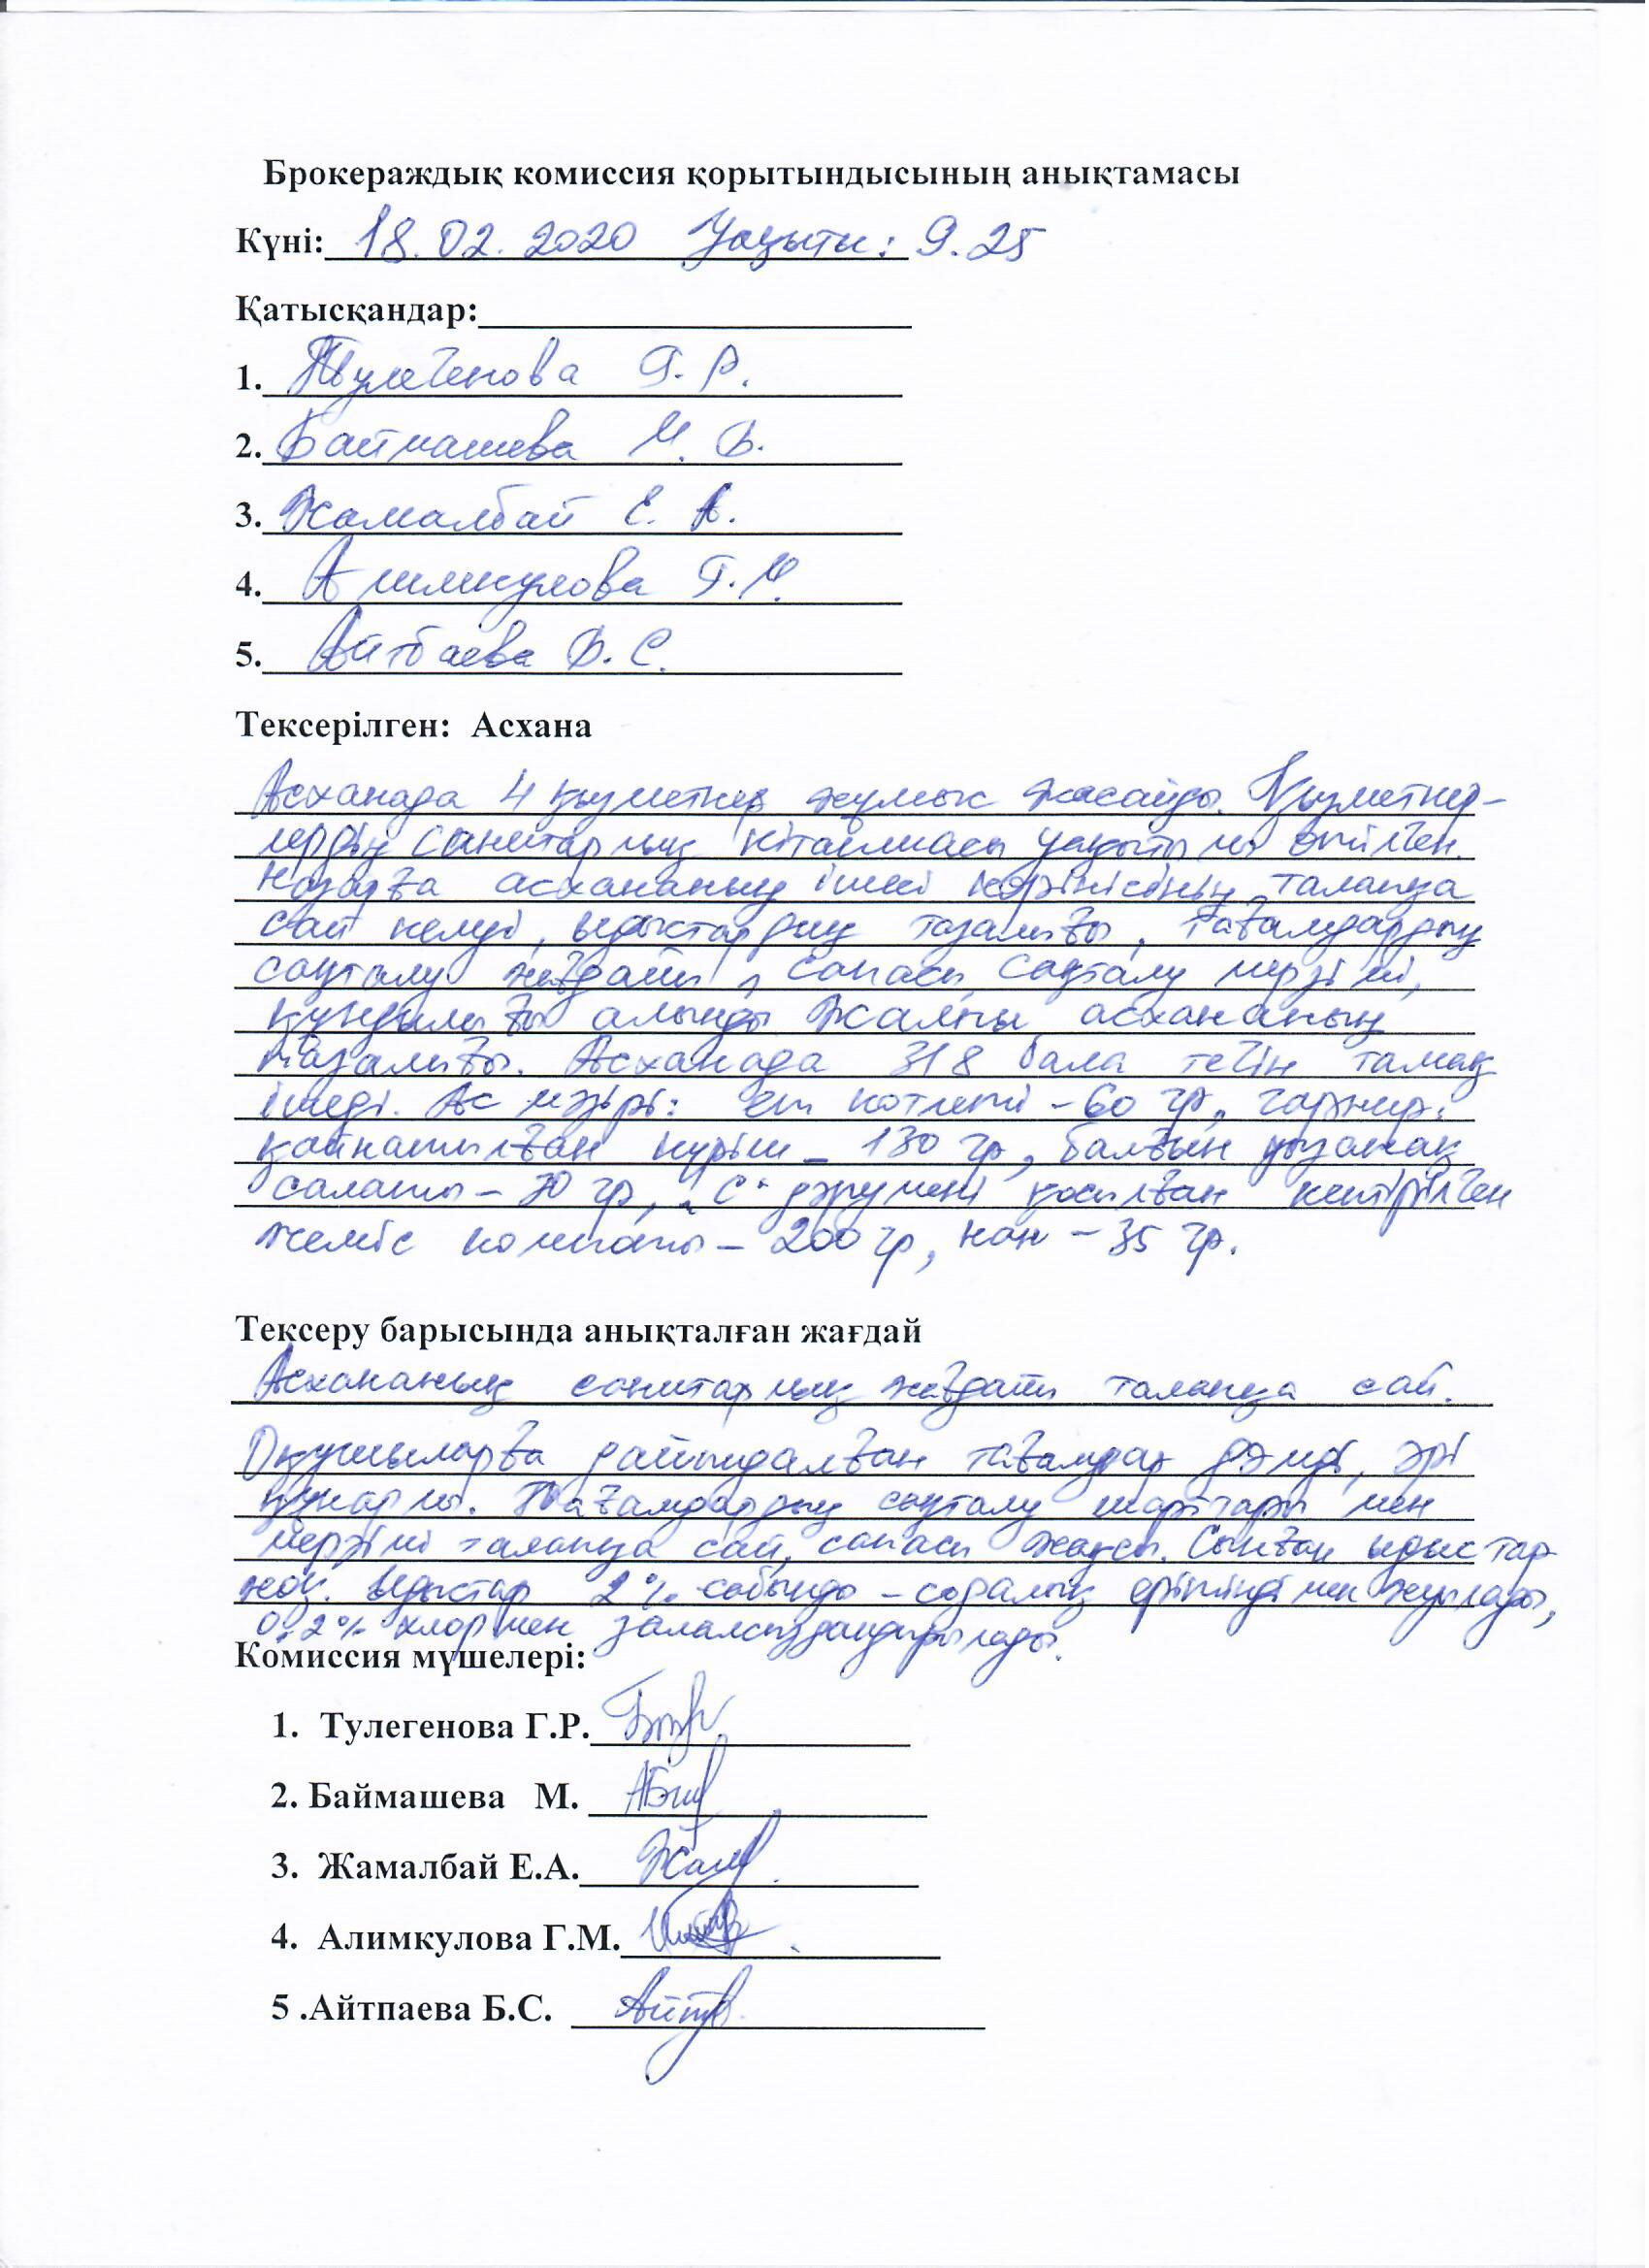 Брокераждық комиссия қорытындысының анықтамасы
Күні: 18.02.2020 Уақыты: 9.25
Қатысқандар:
1. Тулегенова Г.Р.
2. Баймашева М. Б.
3. Жамалбай Е. А.
4. Алимкулова Г.М.
5. Айтбаева Б. С.
Тексерілген: Асхана
Асханада 4 қызметкер жұмыс жасайды. Қызметкер-
лердің санитарлық кітапшасы уақытылы өткізілген.
Назарға асхананың ішкі көрінісінің талапқа
сай келуі, ыдыстардың тазалығы, тағамдардың
сақталу жағдайы, сапасы, сақталу мерзімі,
құндылығы алынды. Жалпы асхананың
тазалығы. Асханада 318 бала тегін тамақ
ішеді. Ас мәзірі: ет котлеті – 60 гр, гарнир:
қайнатылған күріш – 130 гр, балғын қызанақ
салаты – 70 гр, "С" дәрумені қосылған кептірілген
жеміс компоты – 200 гр, нан – 35 гр.
Тексеру барысында анықталған жағдай
Асхананың санитарлық жағдайы талапқа сай.
Оқушыларға дайындалған тағамдар дәмді, әрі
құнарлы. Тағамдардың сақталу шарттары мен
мерзімі талапқа сай, сапасы жақсы. Сынған ыдыстар
жоқ. Ыдыстар 2% сабынды – содалық ерітіндімен жуылады,
0,2% хлормен залалсыздандырылады.
Комиссия мүшелері:
1. Тулегенова Г.Р.
2. Баймашева М.
3. Жамалбай Е.А.
4. Алимкулова Г.М.
5 .Айтпаева Б.С.